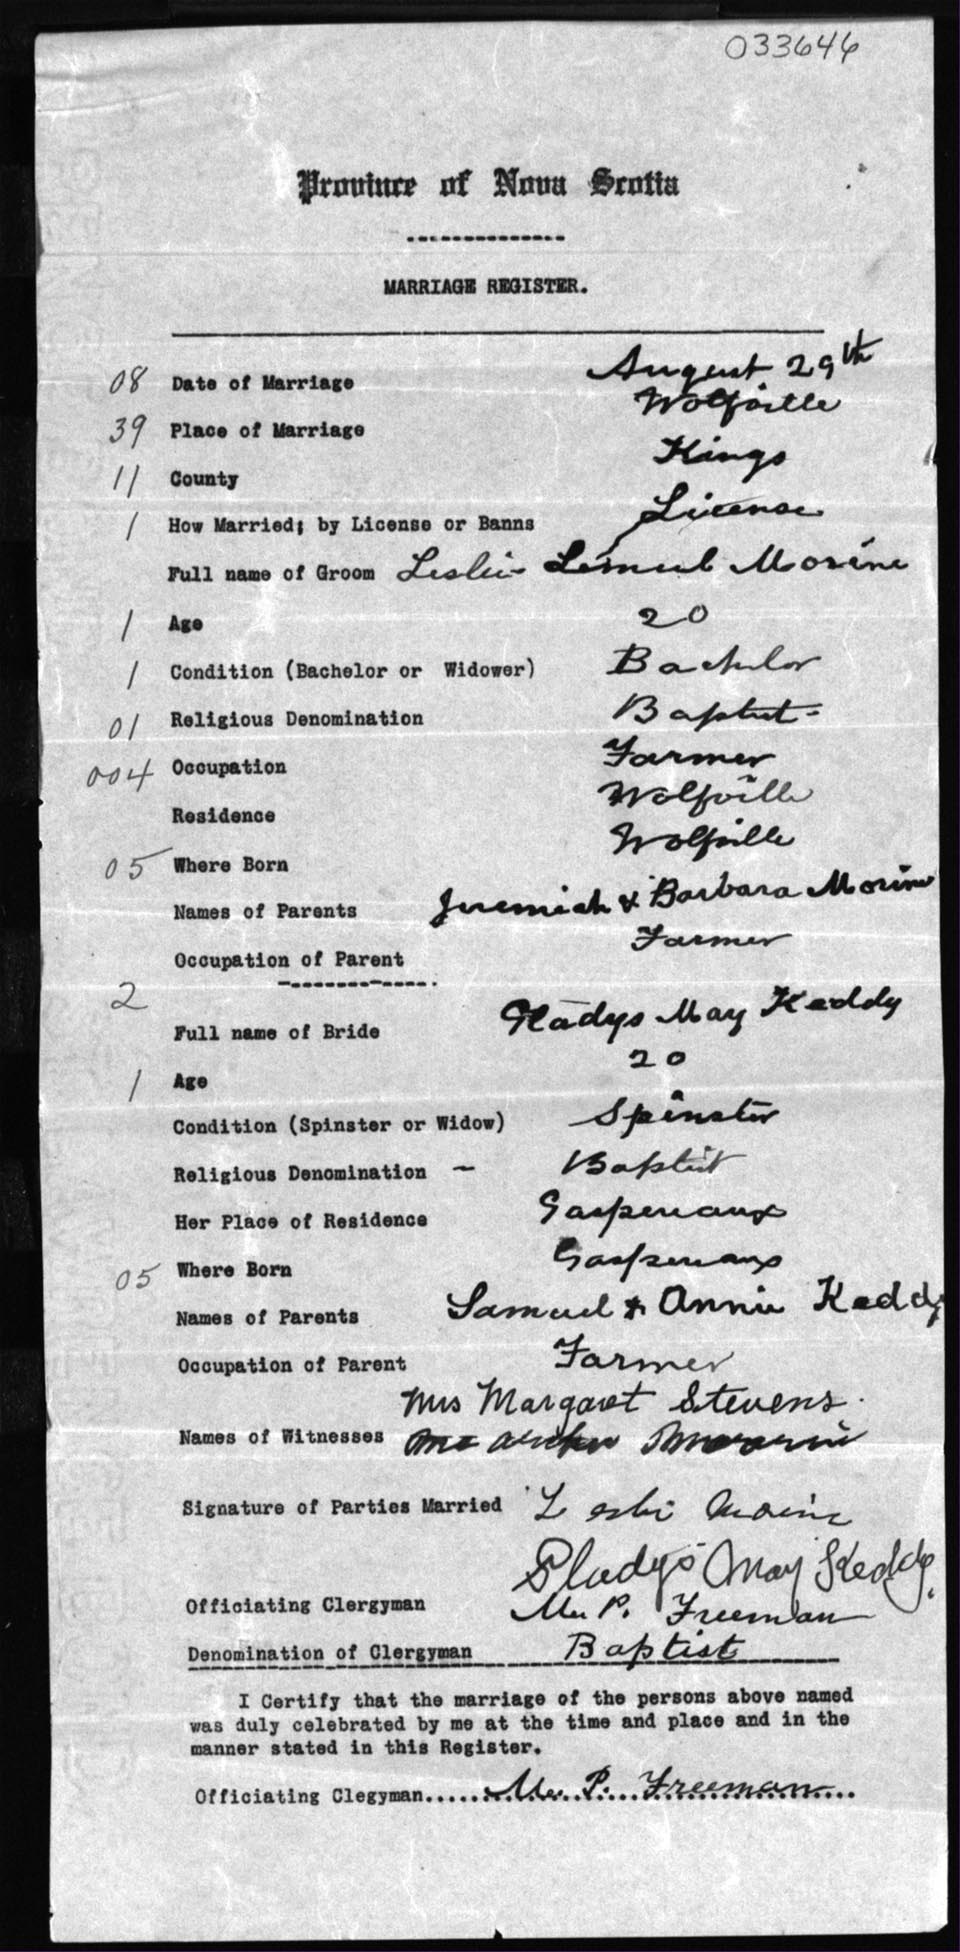 033646
Province of Nova Scotia
MARRIAGE REGISTER.
08 Date of Marriage August 29th
39 Place of Marriage Wolfville
11 County Kings
1 How Married; by License or Banns License
Full name of Groom Leslie Lemuel Morine
1 Age 20
1 Condition (Bachelor or Widower) Bachelor
01 Religious Denomination Baptist
004 Occupation Farmer
Residence Wolfville
05 Where Born Wolfville
Names of Parents Jeremiah & Barbara Morine
Occupation of Parent Farmer
2
Full name of Bride Gladys May Keddy
1 Age 20
Condition (Spinster or Widow) Spinster
Religious Denomination – Baptist
Her Place of Residence Gaspereaux
05 Where Born Gaspereaux
Names of Parents Samuel & Annie Keddy
Occupation of Parent Farmer
Mrs Margaret Stevens.
Names of Witnesses
Signature of Parties Married Leslie Morine
Gladys May Keddy.
Officiating Clergyman P. Freeman
Denomination of Clergyman Baptist
I Certify that the marriage of the persons above named
was duly celebrated by me at the time and place and in the
manner stated in this Register.
Officiating Clegyman..... P. Freeman